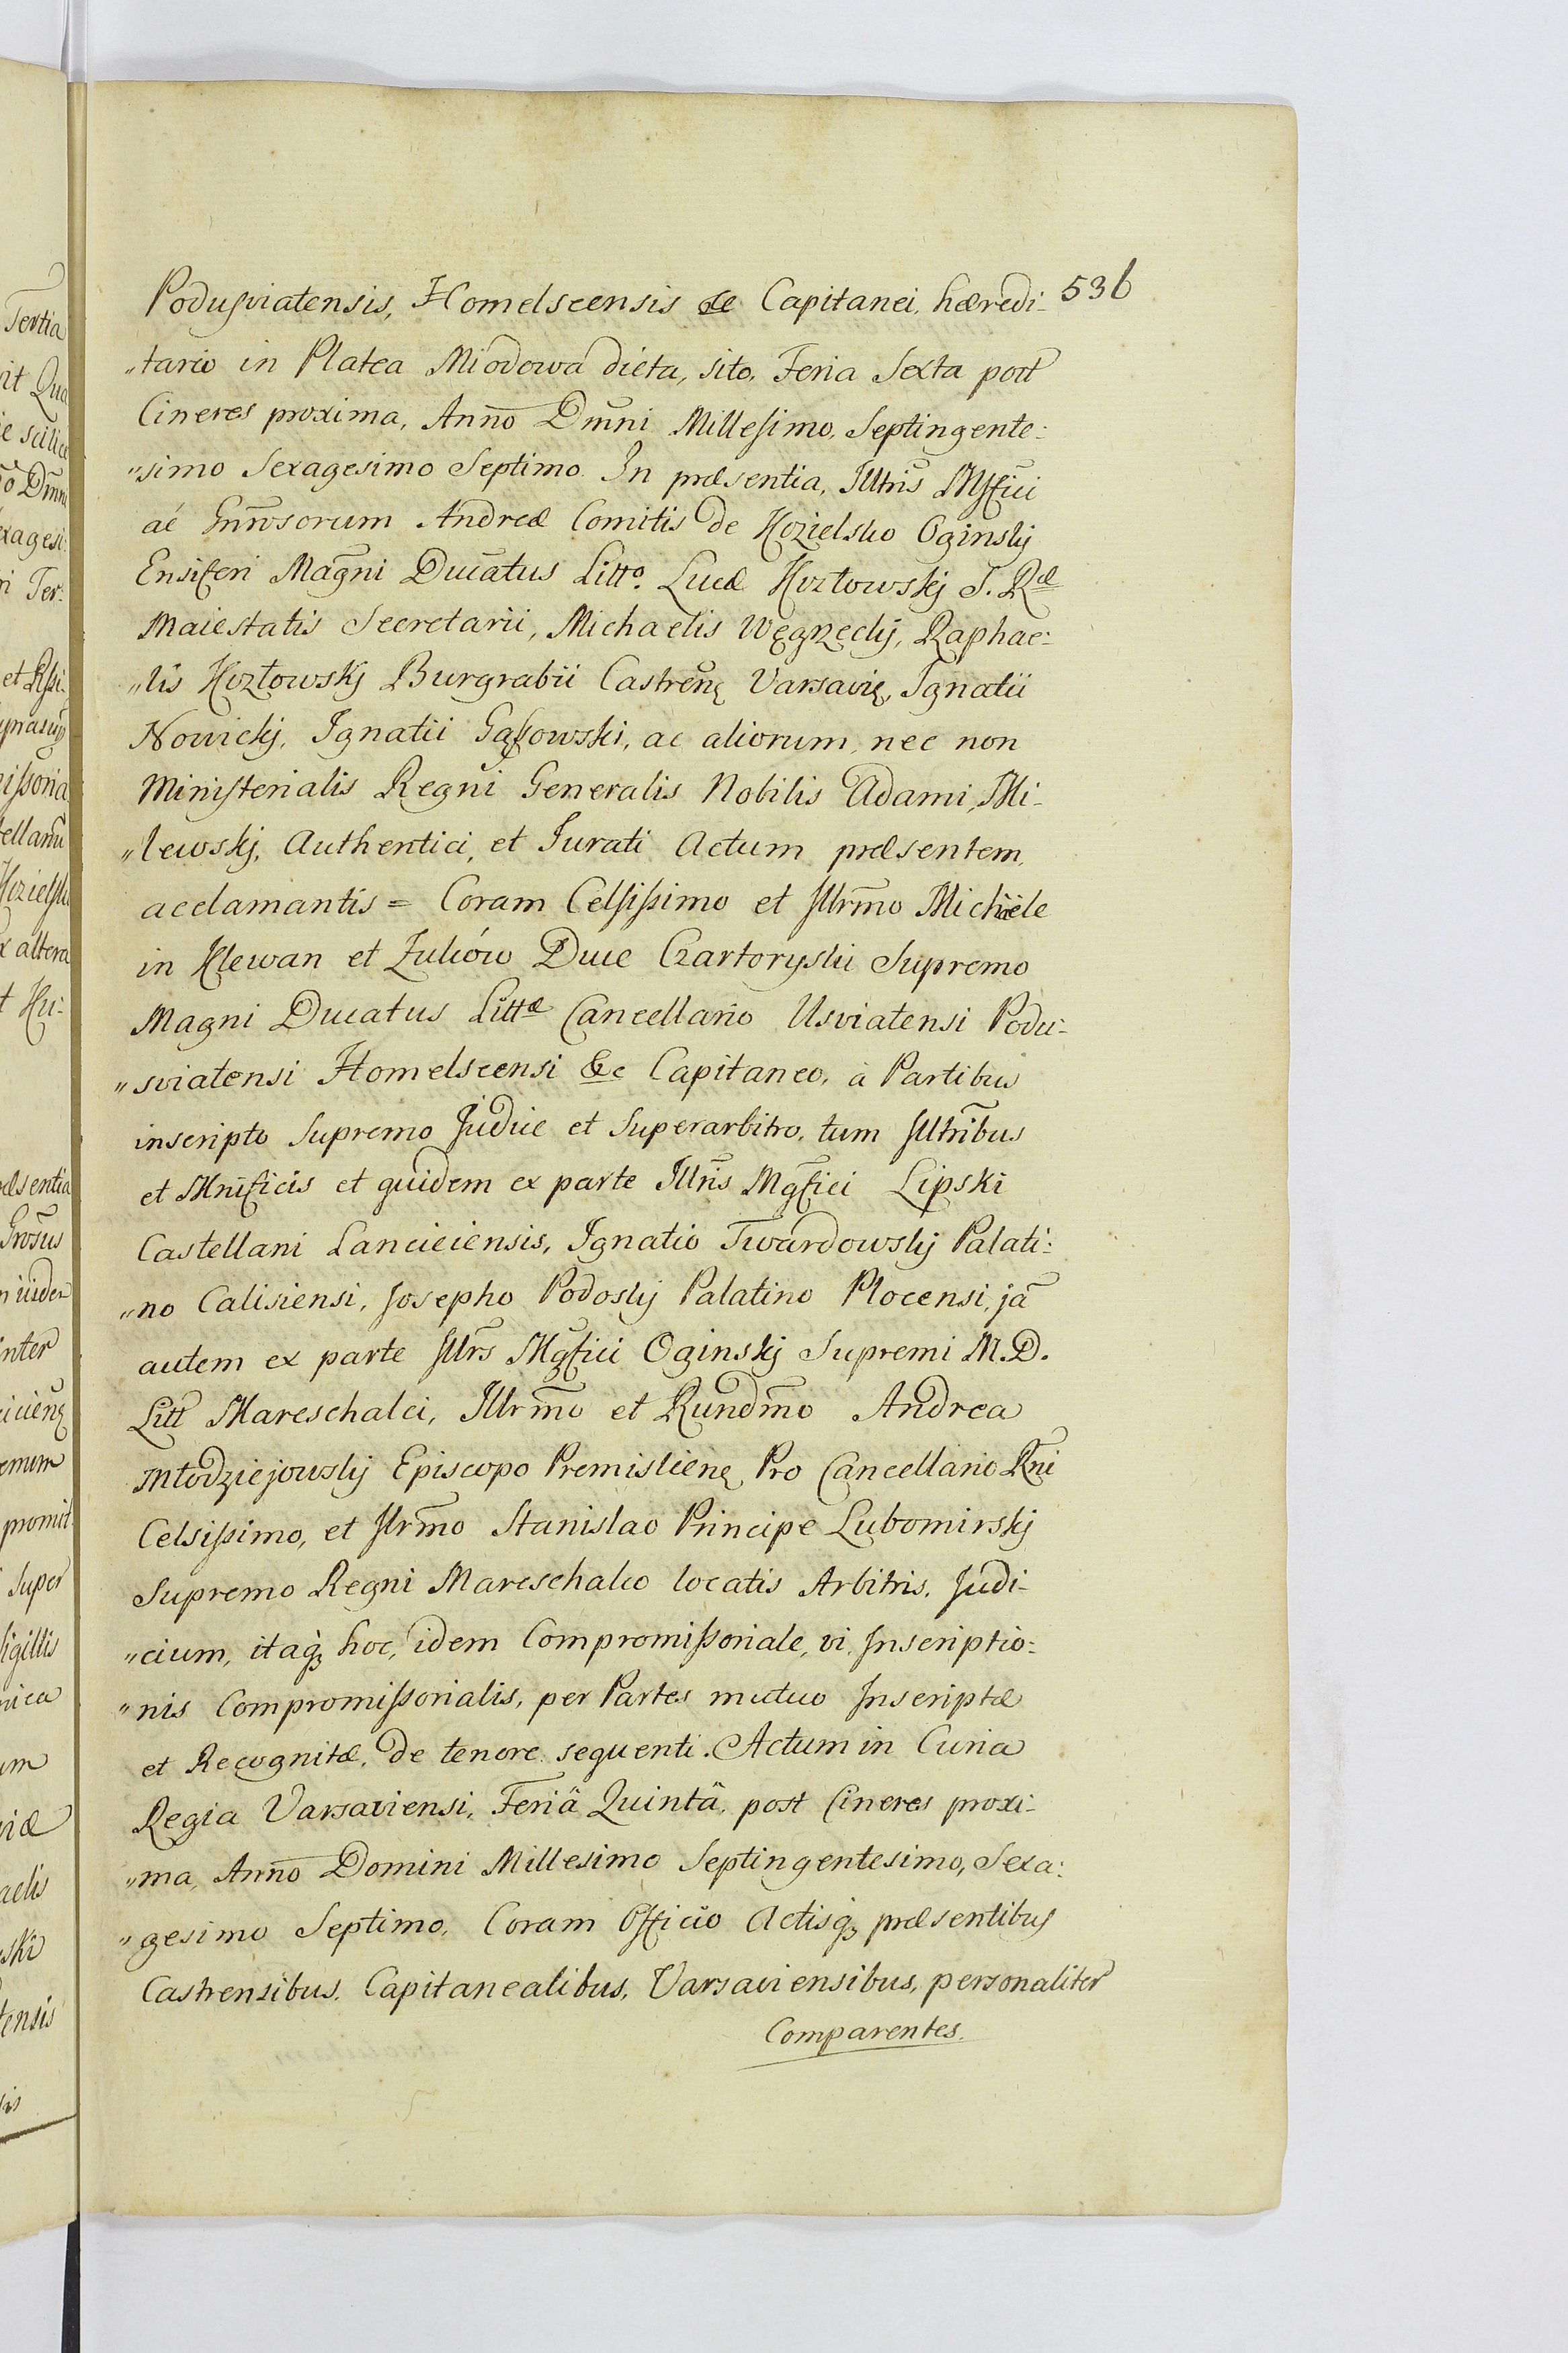 Podusviatensis, Homelscensis &c Capitanei, hæredi- 536
„tario in Platea Miodowa dicta, sito, Feria Sexta post
Cineres proxima, Anno Dm̄ni Millesimo, Septingente:
„simo Sexagesimo Septimo. In præsentia, Illtris Mg̃fici
ac Gnr̄osorum Andreæ Comitis de Kozielsko Oginskij
Ensiferi Magni Ducatus Litto. Lucæ Kozłowskj S. Ræ
Maiestatis Secretarii, Michaelis Węgrzeckj, Raphae:
„lis Kozłowskj Burgrabii Castren̄ę Varsavię, Ignatii
Nowickj, Ignatii Gąssowski, ac aliorum, nec non
Ministerialis Regni Generalis Nobilis Adami, Mi-
„lewskj, Authentici, et Jurati Actum præsentem,
acclamantis = Coram Celsissimo et Illrm̄o Michaële
in Klewan et Żuków Duce Czartoryski Supremo
Magni Ducatus Littæ Cancellario Usviatensi Podu:
„sviatensi Homelscensi &c Capitaneo, à Partibus
inscripto Supremo Judice et Superarbitro, tum Illtribus
et Mnificis et quidem ex parte Illris Mg̃fici Lipski
Castellani Lanciciensis, Ignatio Twardowskj Palati:
„no Calisiensi, Josepho Podoskj Palatino Plocensi, jã
autem ex parte Illrs Mg̃fici Oginskj Supremi M.D.
Litt Mareschalci, Illrm̄o et Rundm̄o Andrea
Młodziejowskj Episcopo Premislienę Pro Cancellario Rni
Celsissimo, et Illrm̄o Stanislao Principe Lubomirskj
Supremo Regni Mareschalco locatis Arbitris. Judi-
„cium, itaqꝫ hoc, idem Compromissoriale, vi, Inscriptio:
„nis Compromissorialis, per Partes mutuo Inscriptæ
et Recognitæ, de tenore sequenti. Actum in Curia
Regia Varsaviensi, Feriâ Quintâ, post Cineres proxi-
„ma, Anno Domini Millesimo Septingentesimo, Sexa:
„gesimo Septimo, Coram Officio Actisqꝫ præsentibus
Castrensibus, Capitanealibus, Varsaviensibus, personaliter
Comparentes.